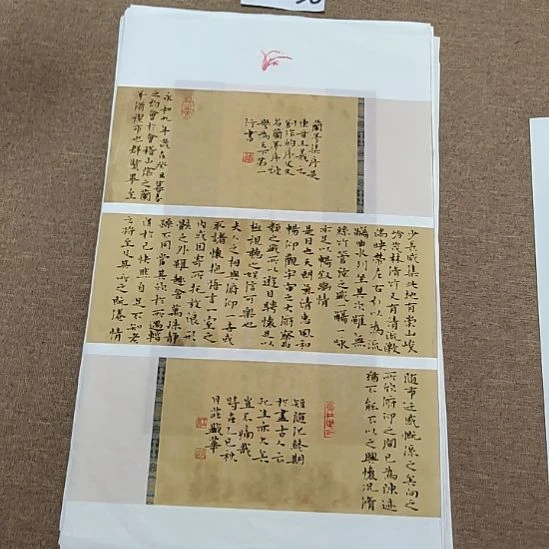 蘭亭集序是
東晉王羲之
創作的序文又
名蘭亭序禊
行書
永和九年歲在癸丑暮春
之初會於會稽山陰之蘭
亭脩禊事也群賢畢至
少長咸集此地有崇山峻
領茂林脩竹又有清流激
湍映帶左右引以為流
觴曲水列坐其次雖無
絲竹管弦之盛一觴一詠
亦足以暢敘幽情
是日也天朗氣清惠風和
暢仰觀宇宙之大俯察品
類之盛所以遊目騁懷足以
極視聽之娛信可樂也
夫人之相與俯仰一世或
取諸懷抱悟言一室之
內或因寄所託放浪形
骸之外雖趣舍萬殊靜
躁不同當其欣於所遇暫
得於己快然自足不知老
之將至及其所之既倦情
隨事遷感慨係之矣向之
所欣俯仰之間已為陳迹
猶不能不以之興懷況脩
短隨化終期
於盡古人云
死生亦大矣
豈不痛哉
時在乙巳秋